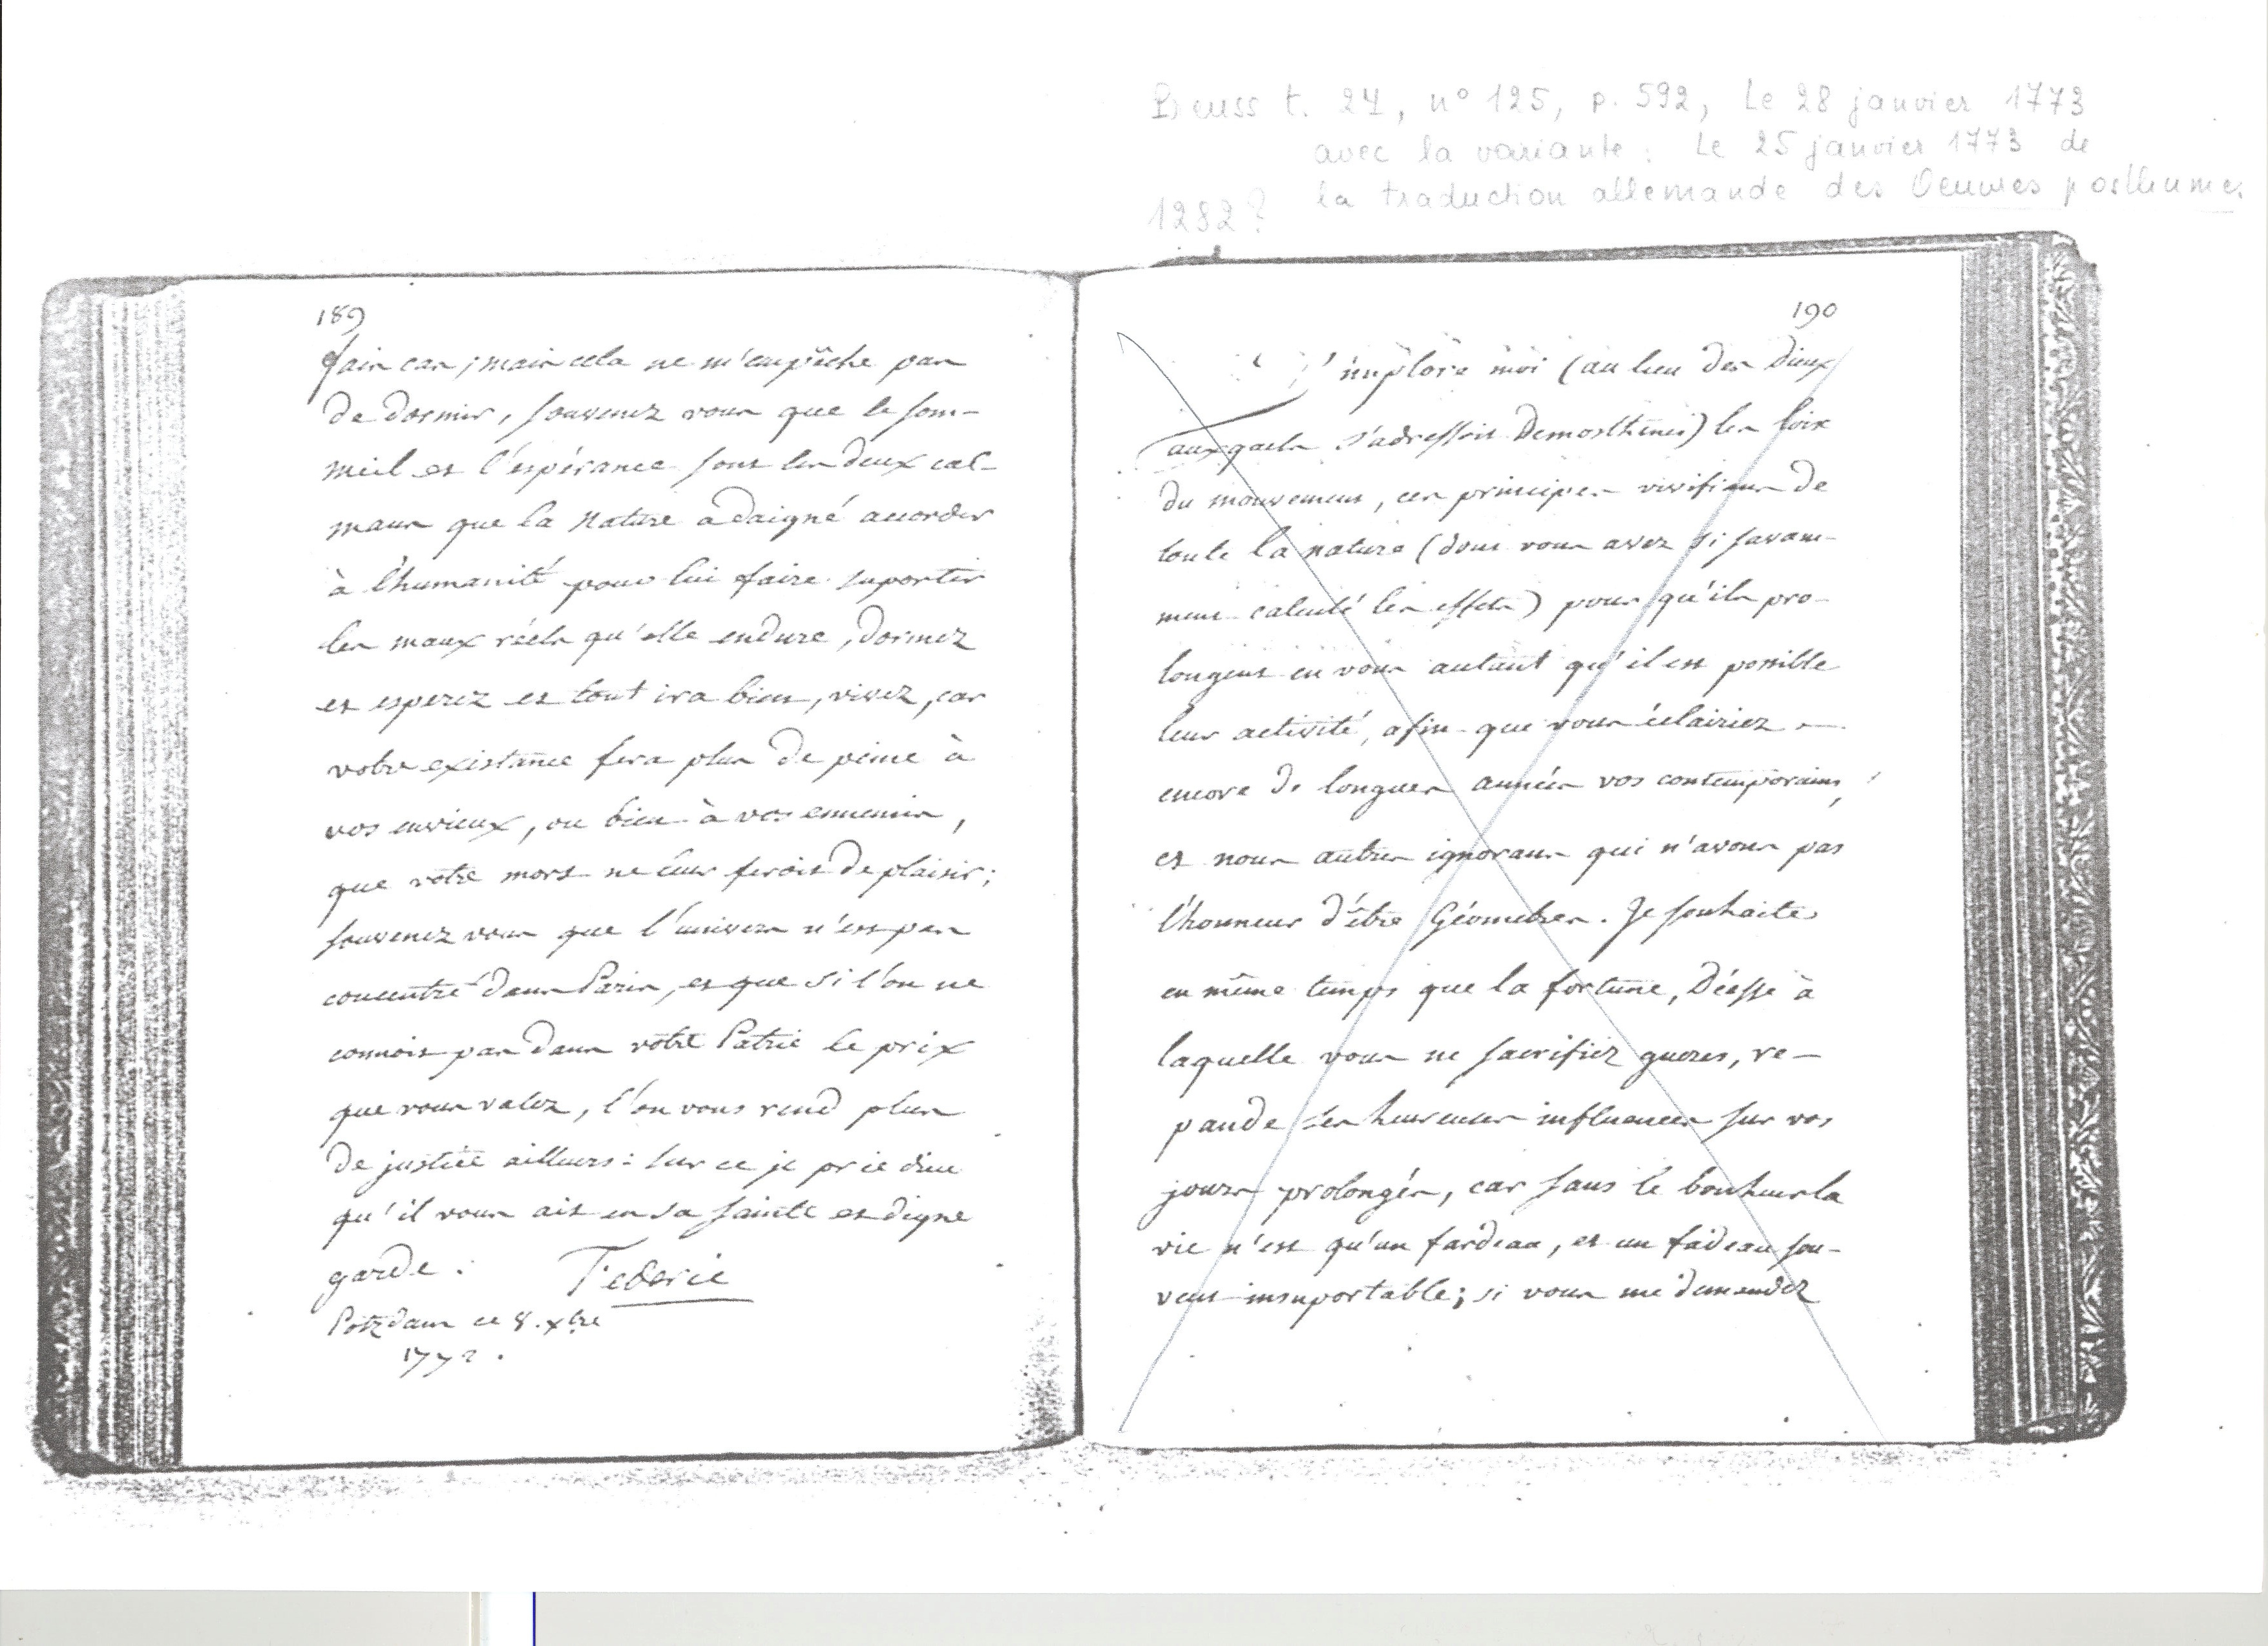 Preuss t. 24, n° 125, p. 592, Le 28 janvier 1773
avec la variante : Le 25 janvier 1773 de
la traduction allemande des Oeuvres posthumes
1282?
189
fais cas ; mais cela ne m'empêche pas
de dormir, souvenez vous que le som-
meil et l'espérance sont les deux cal-
mans que la Nature a daigné accorder
à l'humanité pour lui faire suporter
les maux réels qu'elle endure, dormez
et esperez et tout ira bien, vivez, car
votre existance fera plus de peine à
vos envieux, ou bien à vos ennemis,
que votre mort ne leur feroit de plaisir ;
souvenez vous que l'univers n'est pas
concentré dans Paris, et que si l'on ne
connoit pas dans votre Patrie le prix
que vous valez, l'on vous rend plus
de justice ailleurs : sur ce je prie dieu
qu'il vous ait en sa sainte et digne
garde. Federic
Potzdam ce 8. xbre
1772.
190
J'implore moi (au lieu des Dieux
auxquels s'adressoit Demosthenes) les loix
du mouvement, ces principes vivifians de
toute la nature (dont vous avez si savam-
ment calculé les effets) pour qu'ils pro-
longent en vous autant qu'il est possible
leur activité, afin que vous éclairiez
encore de longues années vos contemporains,
et nous autres ignorans qui n'avons pas
l'honneur d'être Géometres. Je souhaite
en même temps que la fortune, Déesse à
laquelle vous ne sacrifiez gueres, re-
pande ses heureuses influences sur vos
jours prolongés, car sans le bonheur la
vie n'est qu'un fardeau, et un fardeau sou-
vent insuportable ; si vous me demandez